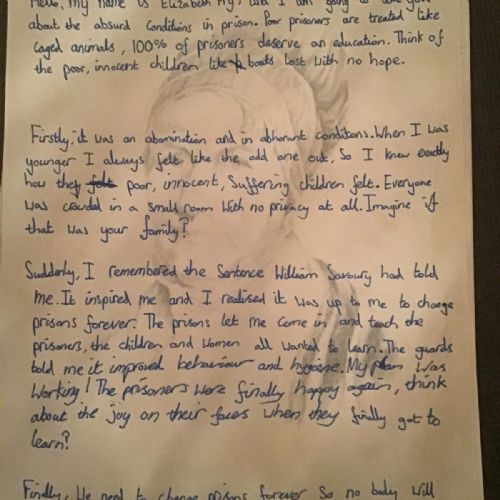 Hello, My name is Elizabeth Fry, and I am going to
about the absurd conditions in prison. Poor prisoners are treated like
caged animals, 100% of prisoners deserve an education. Think of
the poor, innocent children like boats lost with no hope.
Firstly, it was an abomination and in abhorant conditions. When I was
younger I always felt like the odd one out, So I knew exactly
how they felt poor, innocent, Suffering children felt. Everyone
was crowded in a small room with no privacy at all. Imagine if
that was your family?
Suddenly, I remembered the Sentence William Savoury had told
me. It inspired me and I realised it was up to me to change
prisons forever. The prisons let me come in and teach the
prisoners, the children and women all wanted to learn. The guards
told me it improved behaviour and hygiene. My plan was
working! The prisoners were finally happy again, think
about the joy on their faces when they finally got to
learn?
Finally, We need to change prisons forever So no body will